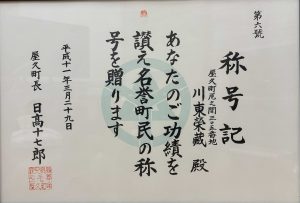 第六號
称号記
屋久町尾之間三三五番地
川東榮藏 殿
あなたのご功績を
讃え名誉町民の称
号を贈ります
平成十一年三月二十九日
屋久町長 日高十七郎